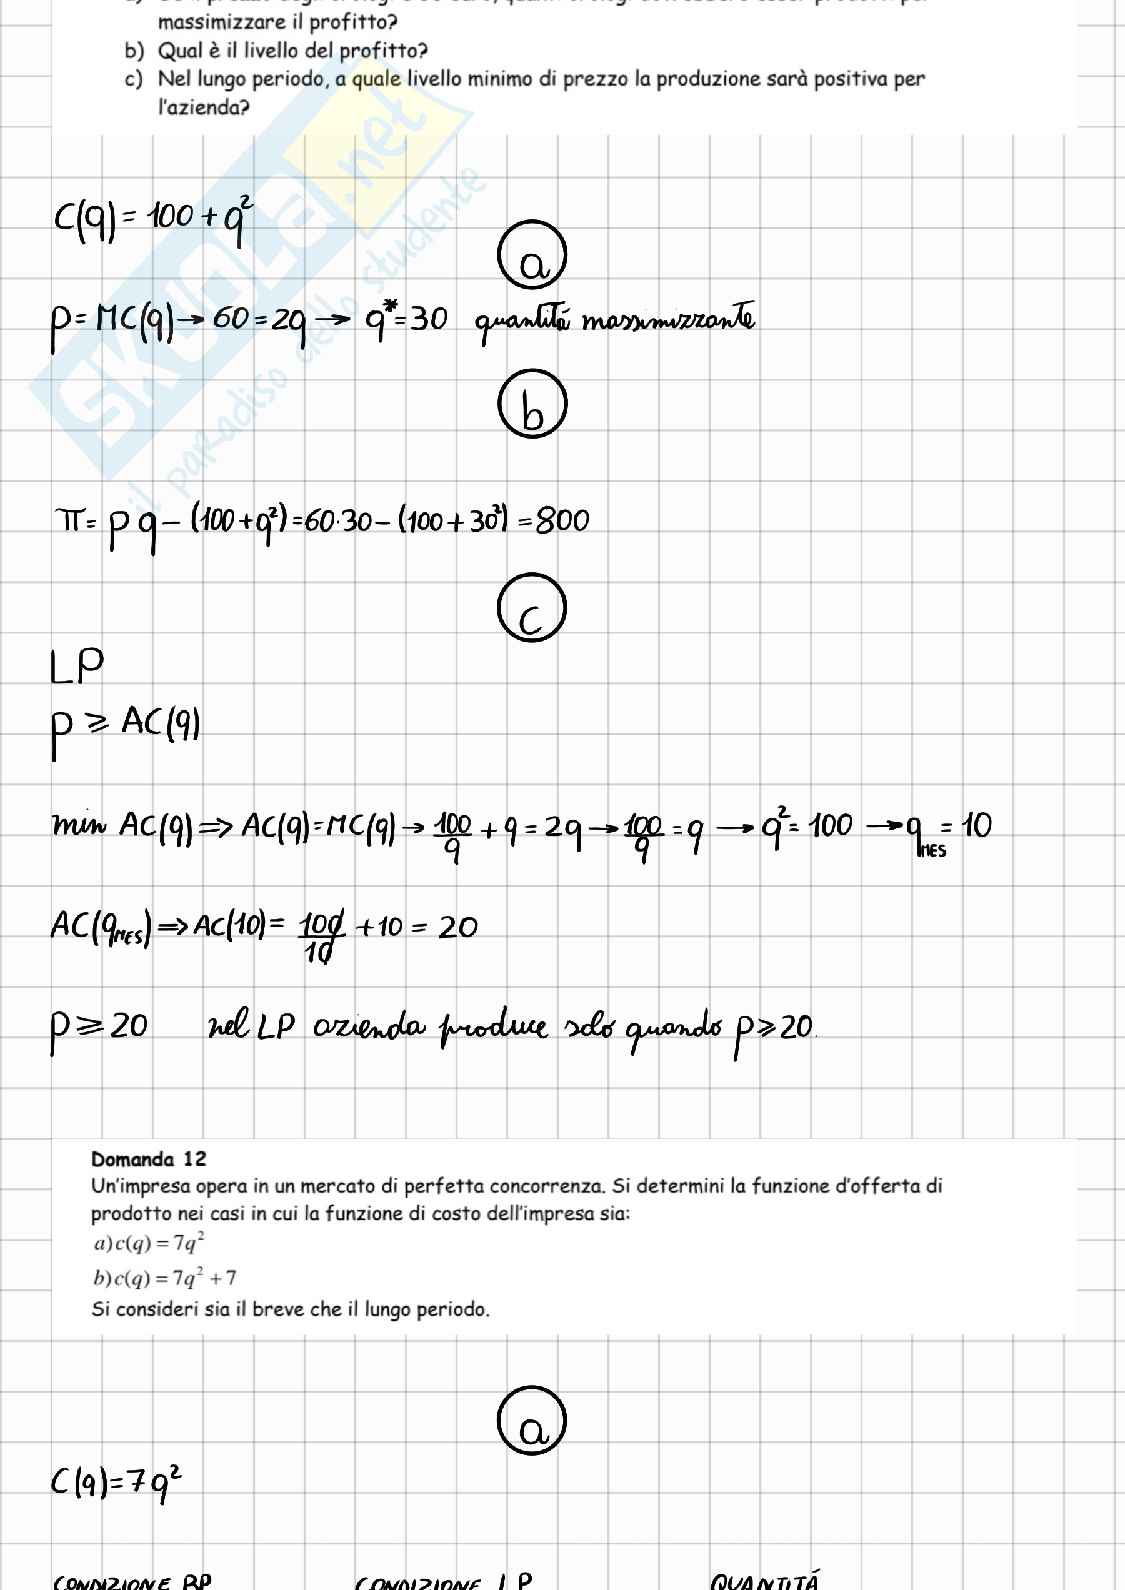 massimizzare il profitto?
b) Qual è il livello del profitto?
c) Nel lungo periodo, a quale livello minimo di prezzo la produzione sarà positiva per
l'azienda?
SKUOLA.net
il paradiso dello studente
C(q) = 100 + q²
a
p = MC(q) → 60 = 2q → q* = 30 quantitá massimizzante
b
π = pq - (100 + q²) = 60·30 - (100 + 30²) = 800
c
LP
p ⩾ AC(q)
min AC(q) ⇒ AC(q) = MC(q) → 100/q + q = 2q → 100/q = q → q² = 100 → qMES = 10
AC(qMES) ⇒ AC(10) = 100/10 + 10 = 20
p ⩾ 20 nel LP azienda produce soló quando p ⩾ 20.
Domanda 12
Un'impresa opera in un mercato di perfetta concorrenza. Si determini la funzione d'offerta di
prodotto nei casi in cui la funzione di costo dell'impresa sia:
a) c(q) = 7q²
b) c(q) = 7q² + 7
Si consideri sia il breve che il lungo periodo.
a
C(q) = 7q²
CONDIZIONE BP CONDIZIONE LP QUANTITÁ